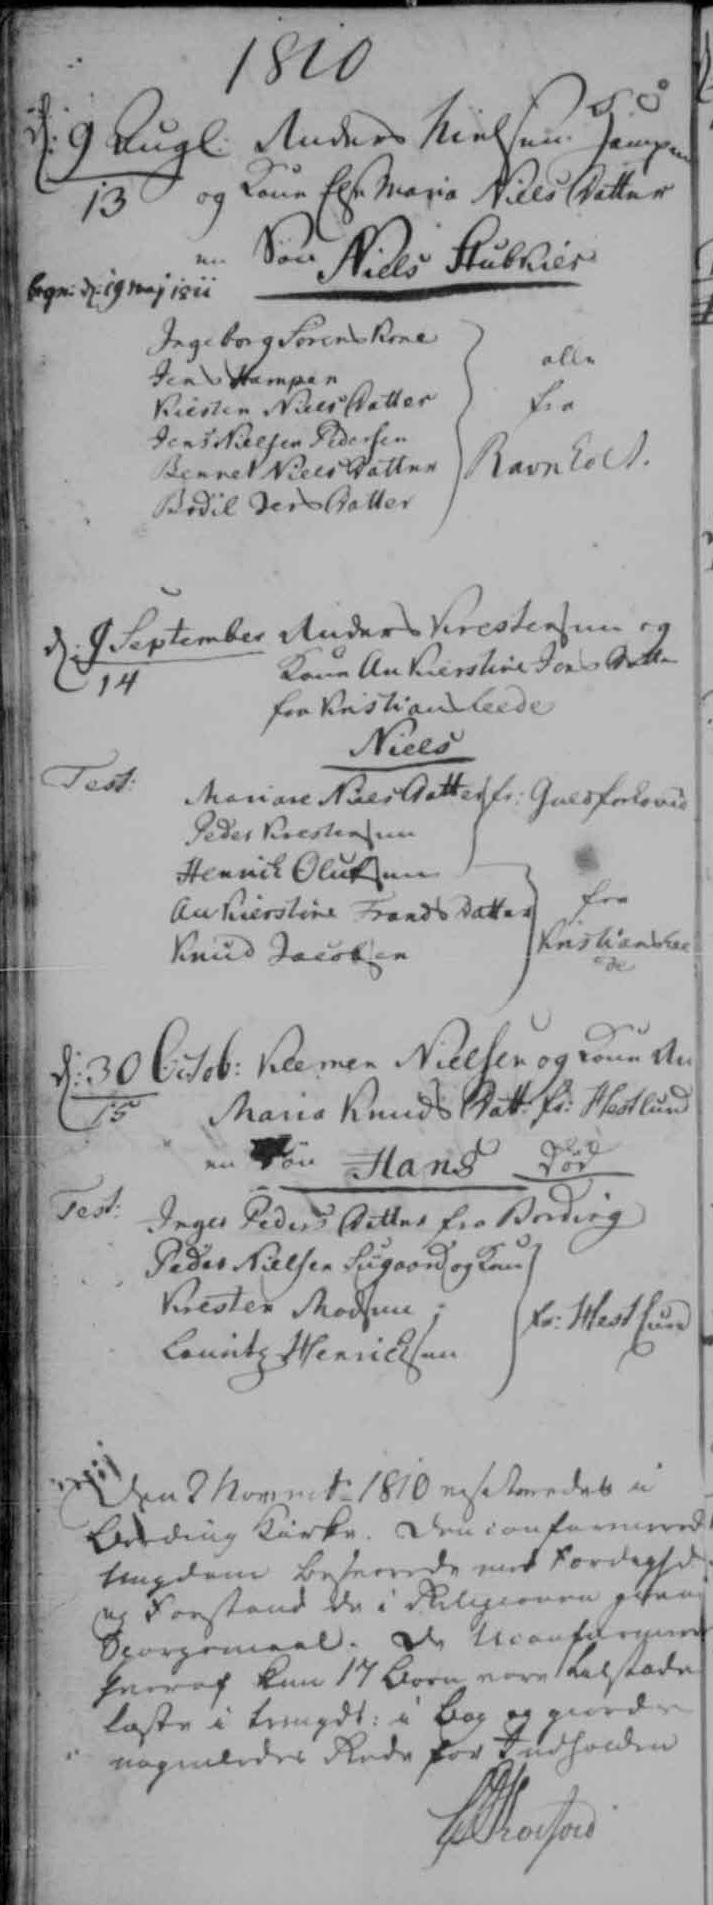 1810
d: 9 Augl: Anders Nielsen Hampen
13 og Kone Else Maria Niels Datter
en Søn Niels Stubkier
begr: d: 19 maj 1811
Ingeborg Sørens Kone
Jens Hampen
Kiesten Niels Datter
Jens Nielsen Pedersen
Bennet Niels Datter
Bodil Jens Datter
alle
fra
Ravnholt.
d: 9 September Anders Krestensen og
14 Kone An Kierstine Jens Datter
fra Kristianshede
Niels
Test:
Mariane Niels Datter fr: Guldforhoved
Peder Krestensen
Henrick Olufsen
An Kierstine Frands Datter
Knud Jacobsen
fra
Kristianshee
de
d: 30 Octob: Klemen Nielsen og Kone An
15 Maria Knuds Datt: fr: Hestlund
en Søn Hans Død
Test: Inger Peders Datter fra Bording
Peder Nielsen Sugaard og Kone
Kresten Madsen
Lauritz Henricksen
fr: Hestlund
Den 2 Novembr 1810 visiteredes i
Bording Kirke. Den confirmered
Ungdom besvarede med Færdighed
og Forstand de i Religionen givne
Spørgsmaal. De Uconfirmerede
hvoraf kun 17 Børn vare tilstæde
læste i Bog og giorde
nogenledes Rede for Indholden